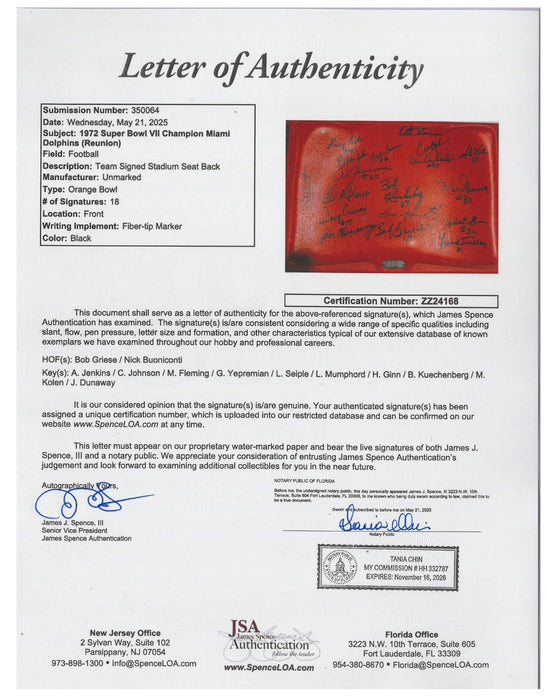 Letter of Authenticity
Submission Number: 350064
Date: Wednesday, May 21, 2025
Subject: 1972 Super Bowl VII Champion Miami
Dolphins (Reunion)
Field: Football
Description: Team Signed Stadium Seat Back
Manufacturer: Unmarked
Type: Orange Bowl
# of Signatures: 18
Location: Front
Writing Implement: Fiber-tip Marker
Color: Black
Bob Griese
Certification Number: ZZ24168
This document shall serve as a letter of authenticity for the above-referenced signature(s), which James Spence
Authentication has examined. The signature(s) is/are consistent considering a wide range of specific qualities including
slant, flow, pen pressure, letter size and formation, and other characteristics typical of our extensive database of known
exemplars we have examined throughout our hobby and professional careers.
HOF(s): Bob Griese / Nick Buoniconti
Key(s): A. Jenkins / C. Johnson / M. Fleming / G. Yepremian / L. Seiple / L. Mumphord / H. Ginn / B. Kuechenberg / M.
Kolen / J. Dunaway
It is our considered opinion that the signature(s) is/are genuine. Your authenticated signature(s) has been
assigned a unique certification number, which is uploaded into our restricted database and can be confirmed on our
website www.SpenceLOA.com at any time.
This letter must appear on our proprietary water-marked paper and bear the live signatures of both James J.
Spence, III and a notary public. We appreciate your consideration of entrusting James Spence Authentication's
judgement and look forward to examining additional collectibles for you in the near future.
Autographically Yours,
James J. Spence, III
Senior Vice President
James Spence Authentication
NOTARY PUBLIC OF FLORIDA
Before me, the undersigned notary public, this day personally appeared James J. Spence, III 3223 N.W. 10th
Terrace, Suite 604 Fort Lauderdale, FL 33309, to me known to who being duly sworn according to law, claimed this to
be a true document.
Sworn and subscribed to before me on May 21, 2025
Notary Public
TANIA CHIN
MY COMMISSION # HH 332787
EXPIRES: November 16, 2026
New Jersey Office
2 Sylvan Way, Suite 102
Parsippany, NJ 07054
973-898-1300 • Info@SpenceLOA.com
JSA
James Spence
Authentication
follow the leader
www.SpenceLOA.com
Florida Office
3223 N.W. 10th Terrace, Suite 605
Fort Lauderdale, FL 33309
954-380-8670 • Florida@SpenceLOA.com